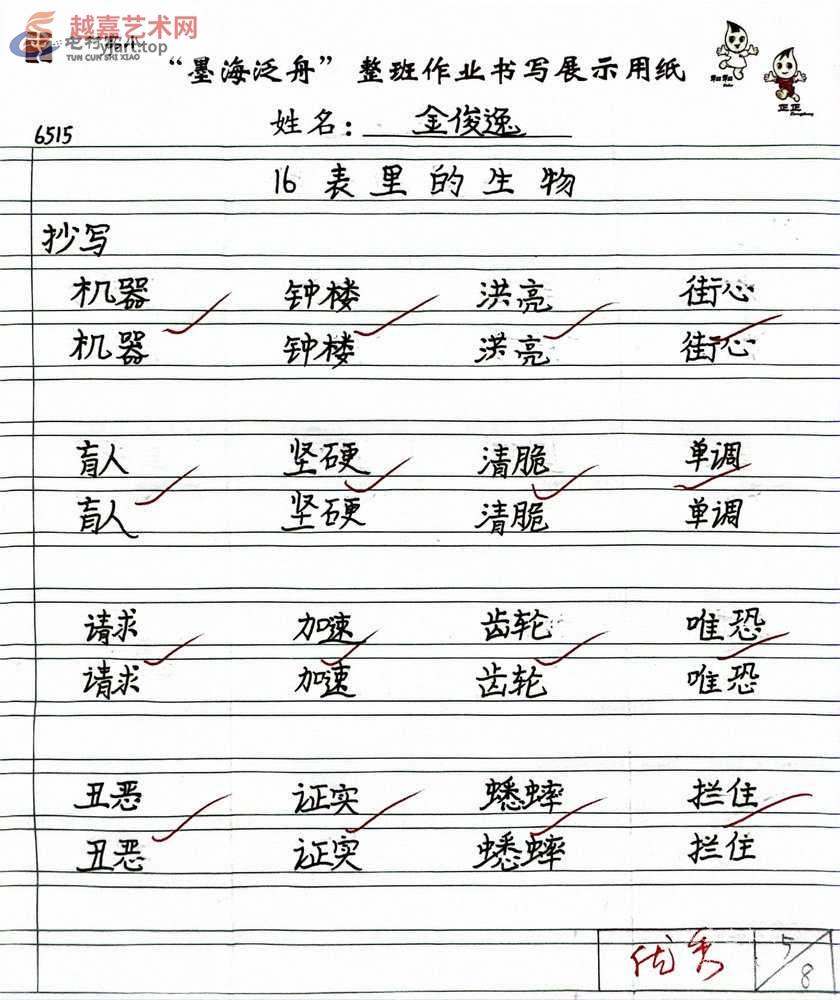 越嘉艺术网
yjart.top
TUN CUN SHI XIAO
“墨海泛舟”整班作业书写展示用纸
6515 姓名：金俊逸
16 表里的生物
抄写
机器 钟楼 洪亮 街心
机器 钟楼 洪亮 街心
盲人 坚硬 清脆 单调
盲人 坚硬 清脆 单调
请求 加速 齿轮 唯恐
请求 加速 齿轮 唯恐
丑恶 证实 蟋蟀 拦住
丑恶 证实 蟋蟀 拦住
优秀 5/8